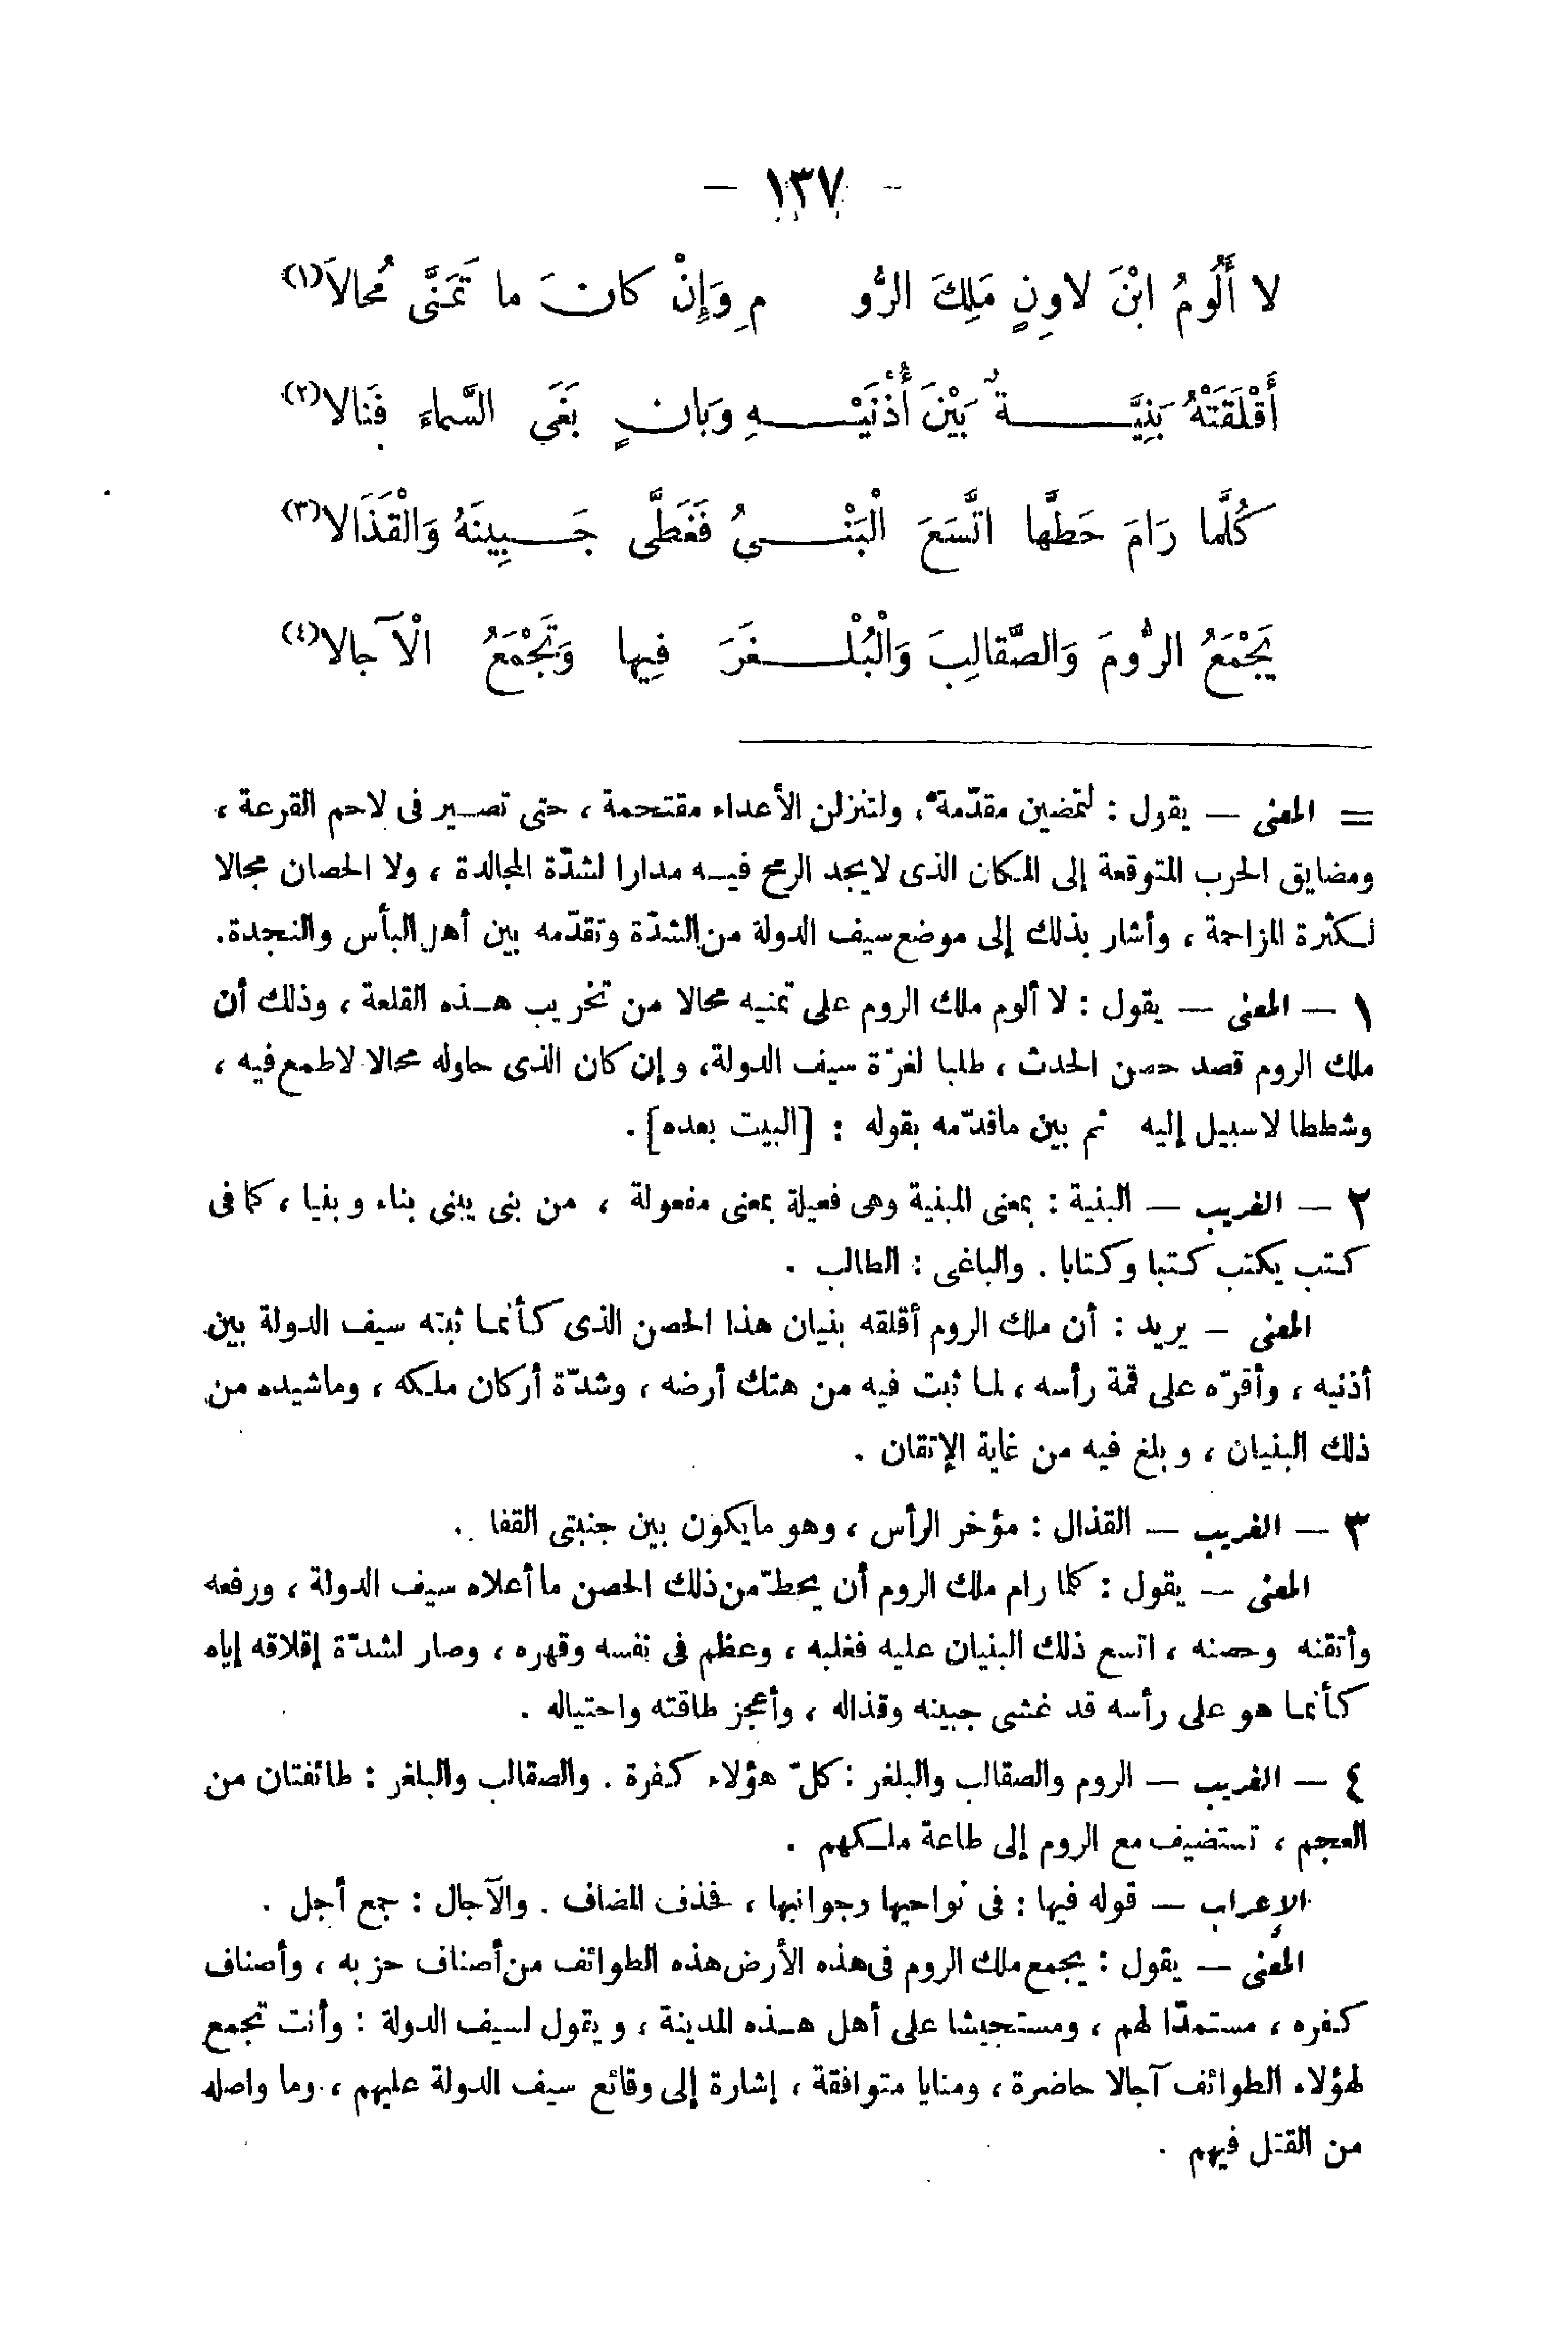 – ١٣٧ –
لا أَلُومُ ابْنَ لاوِنٍ مَلِكَ الرُّو مِ وَإِنْ كانَ ما تَمَنَّى مُحالاَ(١)
أَقْلَقَتْهُ بَنِيَّةٌ بَيْنَ أُذْنَيْهِ وَبانٍ بَغَى السَّماءَ فَنالا(٢)
كُلَّما رَامَ حَطَّها اتَّسَعَ الْبَنْيُ فَغَطَّى جَبِينَهُ وَالْقَذَالا(٣)
يَجْمَعُ الرُّومَ وَالصَّقالِبَ وَالْبُلْغَرَ فِيها وَتَجْمَعُ الْآجالا(٤)
= المعنى — يقول : لتمضين مقدّمة ، ولتنزلن الأعداء مقتحمة ، حتى تصير فى لاحم القرعة ،
ومضايق الحرب المتوقعة إلى المكان الذى لايجد الرمح فيه مدارا لشدّة المجالدة ، ولا الحصان مجالا
لكثرة المزاحمة ، وأشار بذلك إلى موضع سيف الدولة من الشدّة وتقدّمه بين أهل البأس والنجدة.
١ — المعنى — يقول : لا ألوم ملك الروم على تمنيه محالا من تخريب هذه القلعة ، وذلك أن
ملك الروم قصد حصن الحدث ، طلبا لغرّة سيف الدولة، وإن كان الذى حاوله محالا لاطمع فيه ،
وشططا لاسبيل إليه ثم بين ماقدّمه بقوله : [البيت بعده] .
٢ — الغريب — البنية : بمعنى المبنية وهى فعيلة بمعنى مفعولة ، من بنى يبنى بناء وبنيا ، كما فى
كتب يكتب كتبا وكتابا . والباغى : الطالب .
المعنى — يريد : أن ملك الروم أقلقه بنيان هذا الحصن الذى كأنما ثبته سيف الدولة بين
أذنيه ، وأقرّه على قمة رأسه ، لما ثبت فيه من هتك أرضه ، وشدّة أركان ملكه ، وماشيده من
ذلك البنيان ، وبلغ فيه من غاية الإتقان .
٣ — الغريب — القذال : مؤخر الرأس ، وهو مايكون بين جنبتى القفا .
المعنى — يقول : كلما رام ملك الروم أن يحطّ من ذلك الحصن ما أعلاه سيف الدولة ، ورفعه
وأتقنه وحصنه ، اتسع ذلك البنيان عليه فغلبه ، وعظم فى نفسه وقهره ، وصار لشدّة إقلاقه إياه
كأنما هو على رأسه قد غشى جبينه وقذاله ، وأعجز طاقته واحتياله .
٤ — الغريب — الروم والصقالب والبلغر : كلّ هؤلاء كفرة . والصقالب والبلغر : طائفتان من
العجم ، تستضيف مع الروم إلى طاعة ملكهم .
الإعراب — قوله فيها : فى نواحيها وجوانبها ، فحذف المضاف . والآجال : جمع أجل .
المعنى — يقول : يجمع ملك الروم فى هذه الأرض هذه الطوائف من أصناف حزبه ، وأصناف
كفره ، مستمدّا لهم ، ومستجيشا على أهل هذه المدينة ، ويقول لسيف الدولة : وأنت تجمع
لهؤلاء الطوائف آجالا حاضرة ، ومنايا متوافقة ، إشارة إلى وقائع سيف الدولة عليهم ، وما واصله
من القتل فيهم .